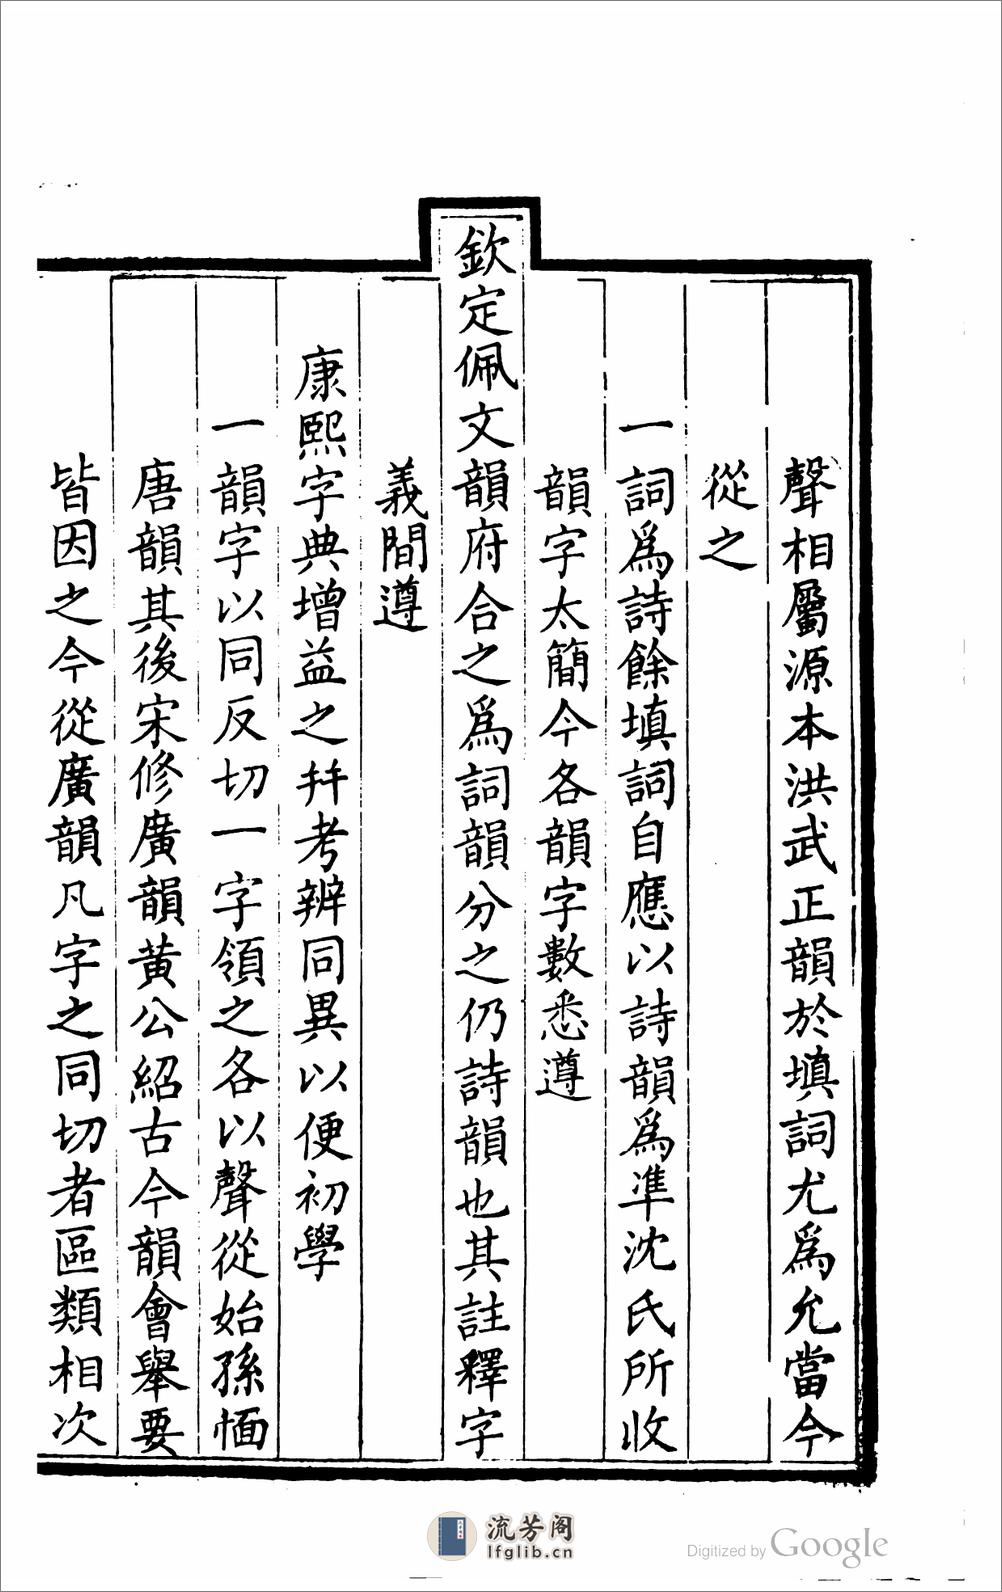 聲相屬源本洪武正韻於填詞尤爲允當今
從之
一詞爲詩餘填詞自應以詩韻爲準沈氏所收
韻字太簡今各韻字數悉遵
欽定佩文韻府合之爲詞韻分之仍詩韻也其註釋字
義間遵
康熙字典增益之幷考辨同異以便初學
一韻字以同反切一字領之各以聲從始孫愐
唐韻其後宋修廣韻黄公紹古今韻會舉要
皆因之今從廣韻凡字之同切者區類相次
流芳阁
lfglib.cn
Digitized by Google